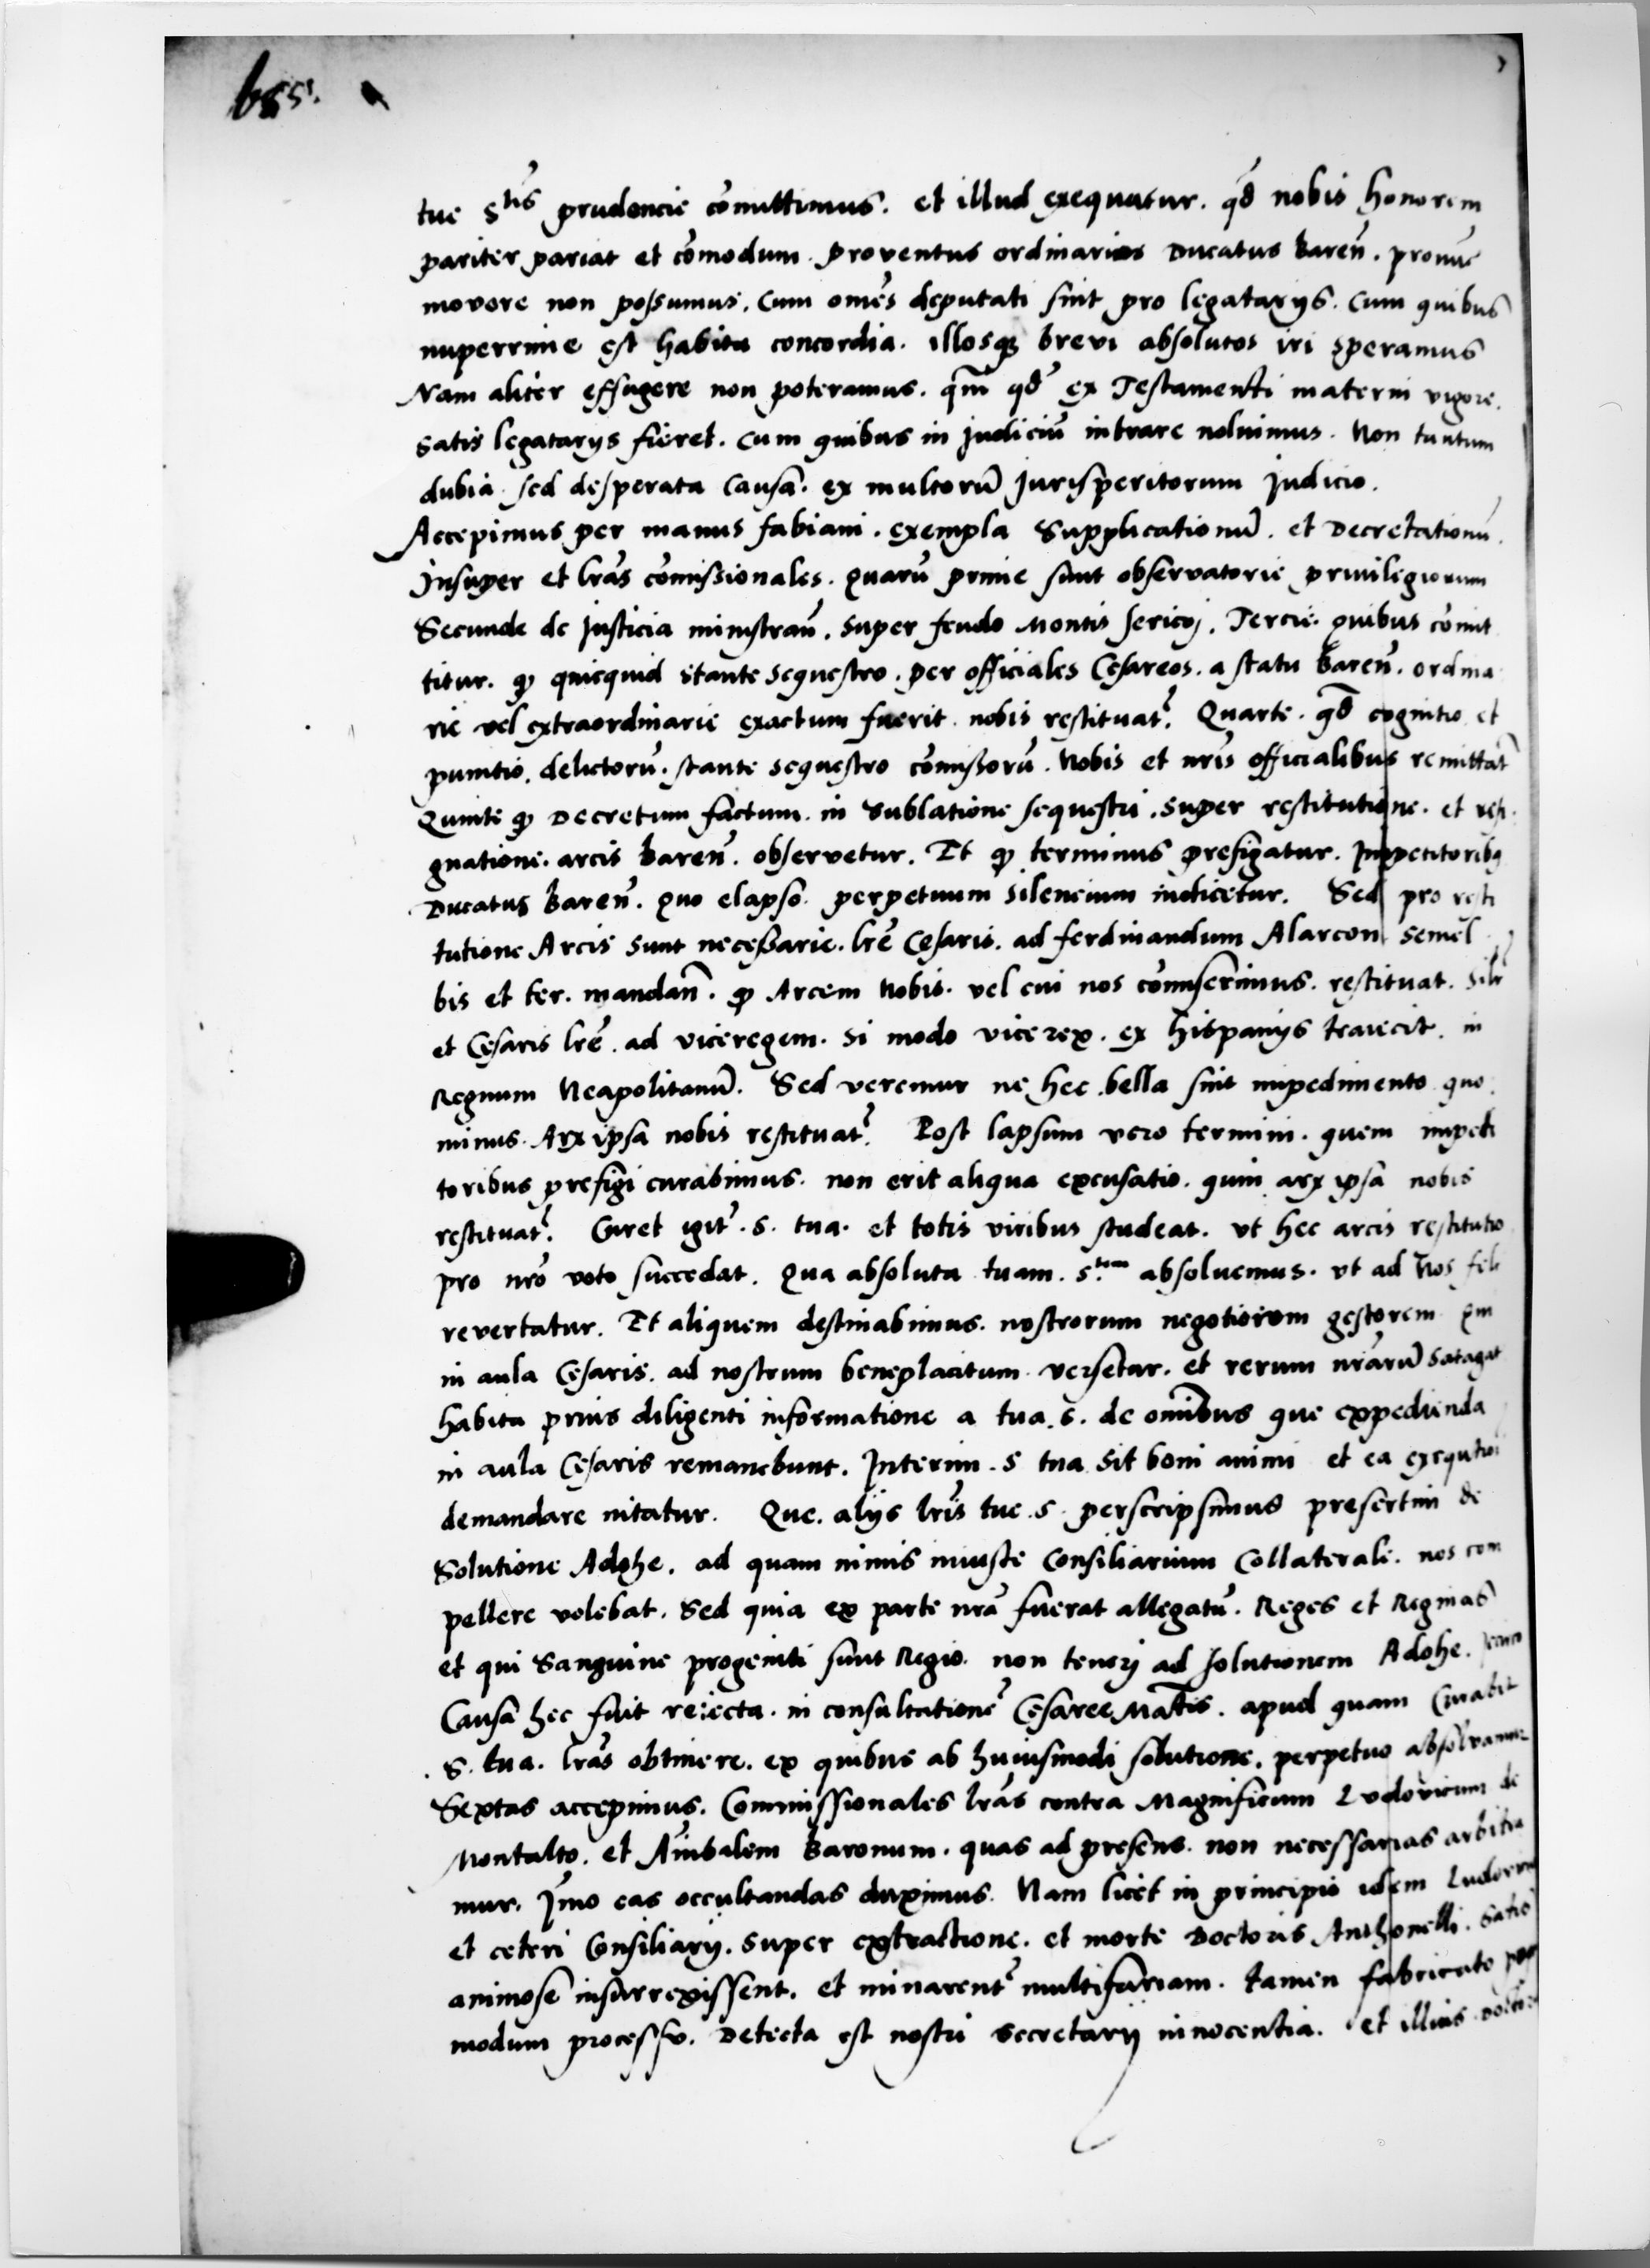 tue Stis prudencie cōmittimus. et illud exequatur. qđ nobis honorem
pariter pariat et cōmodum. proventus ordinarios Ducatus Bareñ. pronūc
movere non possumus. Cum omēs deputati sint pro legatarijs. Cum quibus
nuperrime est habita concordia. illosqz brevi absolutos iri speramus
Nam aliter effugere non poteramus. qm̄ qđ ex Testamenti materni vigore.
satis legatarijs fieret. Cum quibus in Judiciū intrare noluimus. Non tantum
dubia. sed desperata Causa. ex multorū Jurisperitorum Judicio.
Accepimus per manus fabiani. exempla Supplicationū. et Decretationū.
Insuper et lrās cōmissionales. quarū prime sunt observatorie privilegiorum
Secunde de Justicia ministrañ. super feudo Montis sericij. Tercie. quibus cōmit
titur. qɔ quicquid stante sequestro. per officiales Cesareos. a statu Bareñ. ordina
rie vel extraordinarie exactum fuerit. nobis restituat̄. Quarte. qđ cognitio et
punitio, delictorū. stante sequestro cōmissorū. Nobis et nrīs officialibus remittāt
Quinte qɔ Decretum factum. in sublatione sequestri. super restitutione. et resi
gnatione. arcis Bareñ. observetur. Et qɔ terminus prefigatur. Impetitoribq
Ducatus Bareñ. quo elapso. perpetuum silencium indicetur. Sed pro resti
tutione Arcis sunt necessarie. lrē Cesaris. ad ferdinandum Alarcon semel
bis et ter. mandañ. qɔ Arcem Nobis. vel cui nos cōmiserimus. restituat.
et Cesaris lrē. ad viceregem. si modo vicerex. ex Hispanijs traiecit. in
Regnum Neapolitanū. Sed veremur ne hec bella sint impedimento quo
minus. Arx ipsa nobis restituat̄. Post lapsum vero termini. quem impeti
toribus prefigi curabimus. non erit aliqua excusatio. quin arx ipsa nobis
restituat̄. Curet igit̄. S. tua. et totis viribus studeat. vt hec arcis restitutio
pro nrō voto succedat. Qua absoluta tuam. S.tem absoluemus. vt ad Nos
revertatur. Et aliquem destinabimus. nostrorum negotiorum gestorem qm
in aula Cesaris. ad nostrum beneplacitum versetur. et rerum nrārū satagat
habita prius diligenti informatione a tua. S. de omībus que expedienda
in aula Cesaris remanebunt. Interim. S tua sit boni animi et ea
demandare nitatur. Que. alijs lrīs tue. S. perscripsimus presertim de
Solutione Adohe. ad quam nimis iniuste Consiliarium Collaterale. nos com
pellere volebat. Sed quia ex parte nrā fuerat allegatū. Reges et Reginas
et qui Sanguine progeniti sunt Regio. non tenerj ad solutionem Adohe.
Causa hec fuit reiecta. in consultatione Cesaree Mātis. apud quam Curabit
S. tua. lrās obtinere. ex quibus ab huiusmodi solutione. perpetuo absolvamur
Sextas accepimus. Commissionales lrās contra Magnificum Ludovicum de
Montalto. et Anibalem Baronum. quas ad presens. non necessarias arbitra
mur. Imo eas occultandas duximus. Nam licet in principio idem Ludovicus
et ceteri Consiliarij. super extractione. et morte Doctoris Anthonelli. satis
animose insurrexissent. et minarent̄ multifariam. tamen fabricato
modum processu. Detecta est nostri secretarij innocentia. et illius